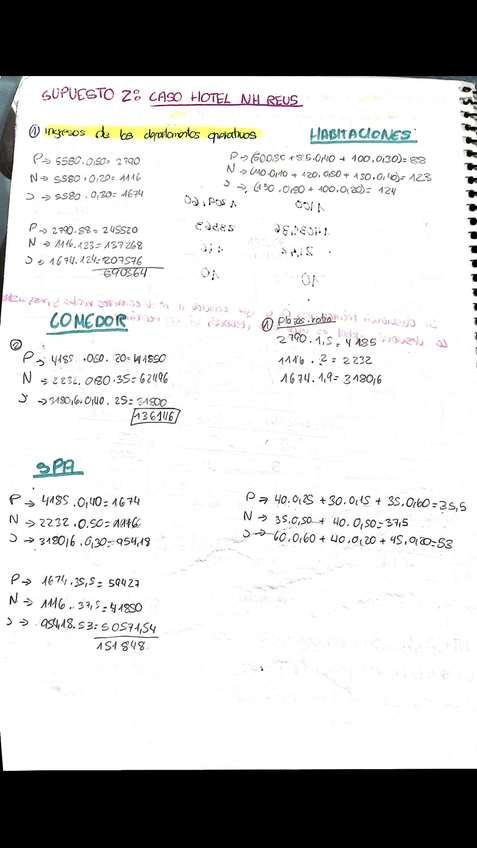 SUPUESTO 2: CASO HOTEL NH REUS
① Ingresos de los departamentos operativos
HABITACIONES
P → 5580.0,50 = 2790
N → 5580.0,20 = 1116
J → 5580.0,30 = 1674
N → (110.0,10 + 120.0,50 + 130.0,40) = 123
P → 2790.88 = 245520
N → 1116.123 = 137268
J → 1674.124 = 207576
590364
COMEDOR
① Plazas.ratio
2790.1,5 = 4185
1116.2 = 2232
1674.1,9 = 3180,6
②
P → 4185.0,50.20 = 41850
N → 2232.0,80.35 = 62496
J → 3180,6.0,40.25 = 31800
136146
SPA
P → 4185.0,40 = 1674
N → 2232.0,50 = 1116
J → 3180,6.0,30 = 954,18
P → 40.0,25 + 30.0,15 + 35.0,60 = 35,5
N → 35.0,50 + 40.0,50 = 37,5
J → 60.0,60 + 40.0,20 + 45.0,20 = 53
P → 1674.35,5 = 59427
N → 1116.37,5 = 41850
J → 954,18.53 = 50571,54
151848